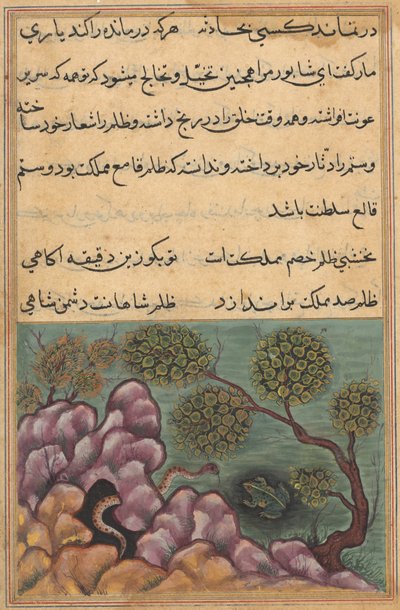 درنماند کسی بحادثه هرکه درمانده را کند یاری
مار گفت ای شاپور مرا همچنین تخیل و تخالج میشود که تو همه که سر بر
عونت افراشتند و همه وقت خلق را در رنج داشتند و ظلم را شعار خود ساخته
و ستم را دثار خود پرداخته و ندانت که ظلم قامع مملکت بود و ستم
قالع سلطنت باشد
نخشبی ظلم خصم مملکت است تو بکو زین دقیقه آکاهی
ظلم صد مملکت براندازد ظلم شاهانست دشمن شاهی